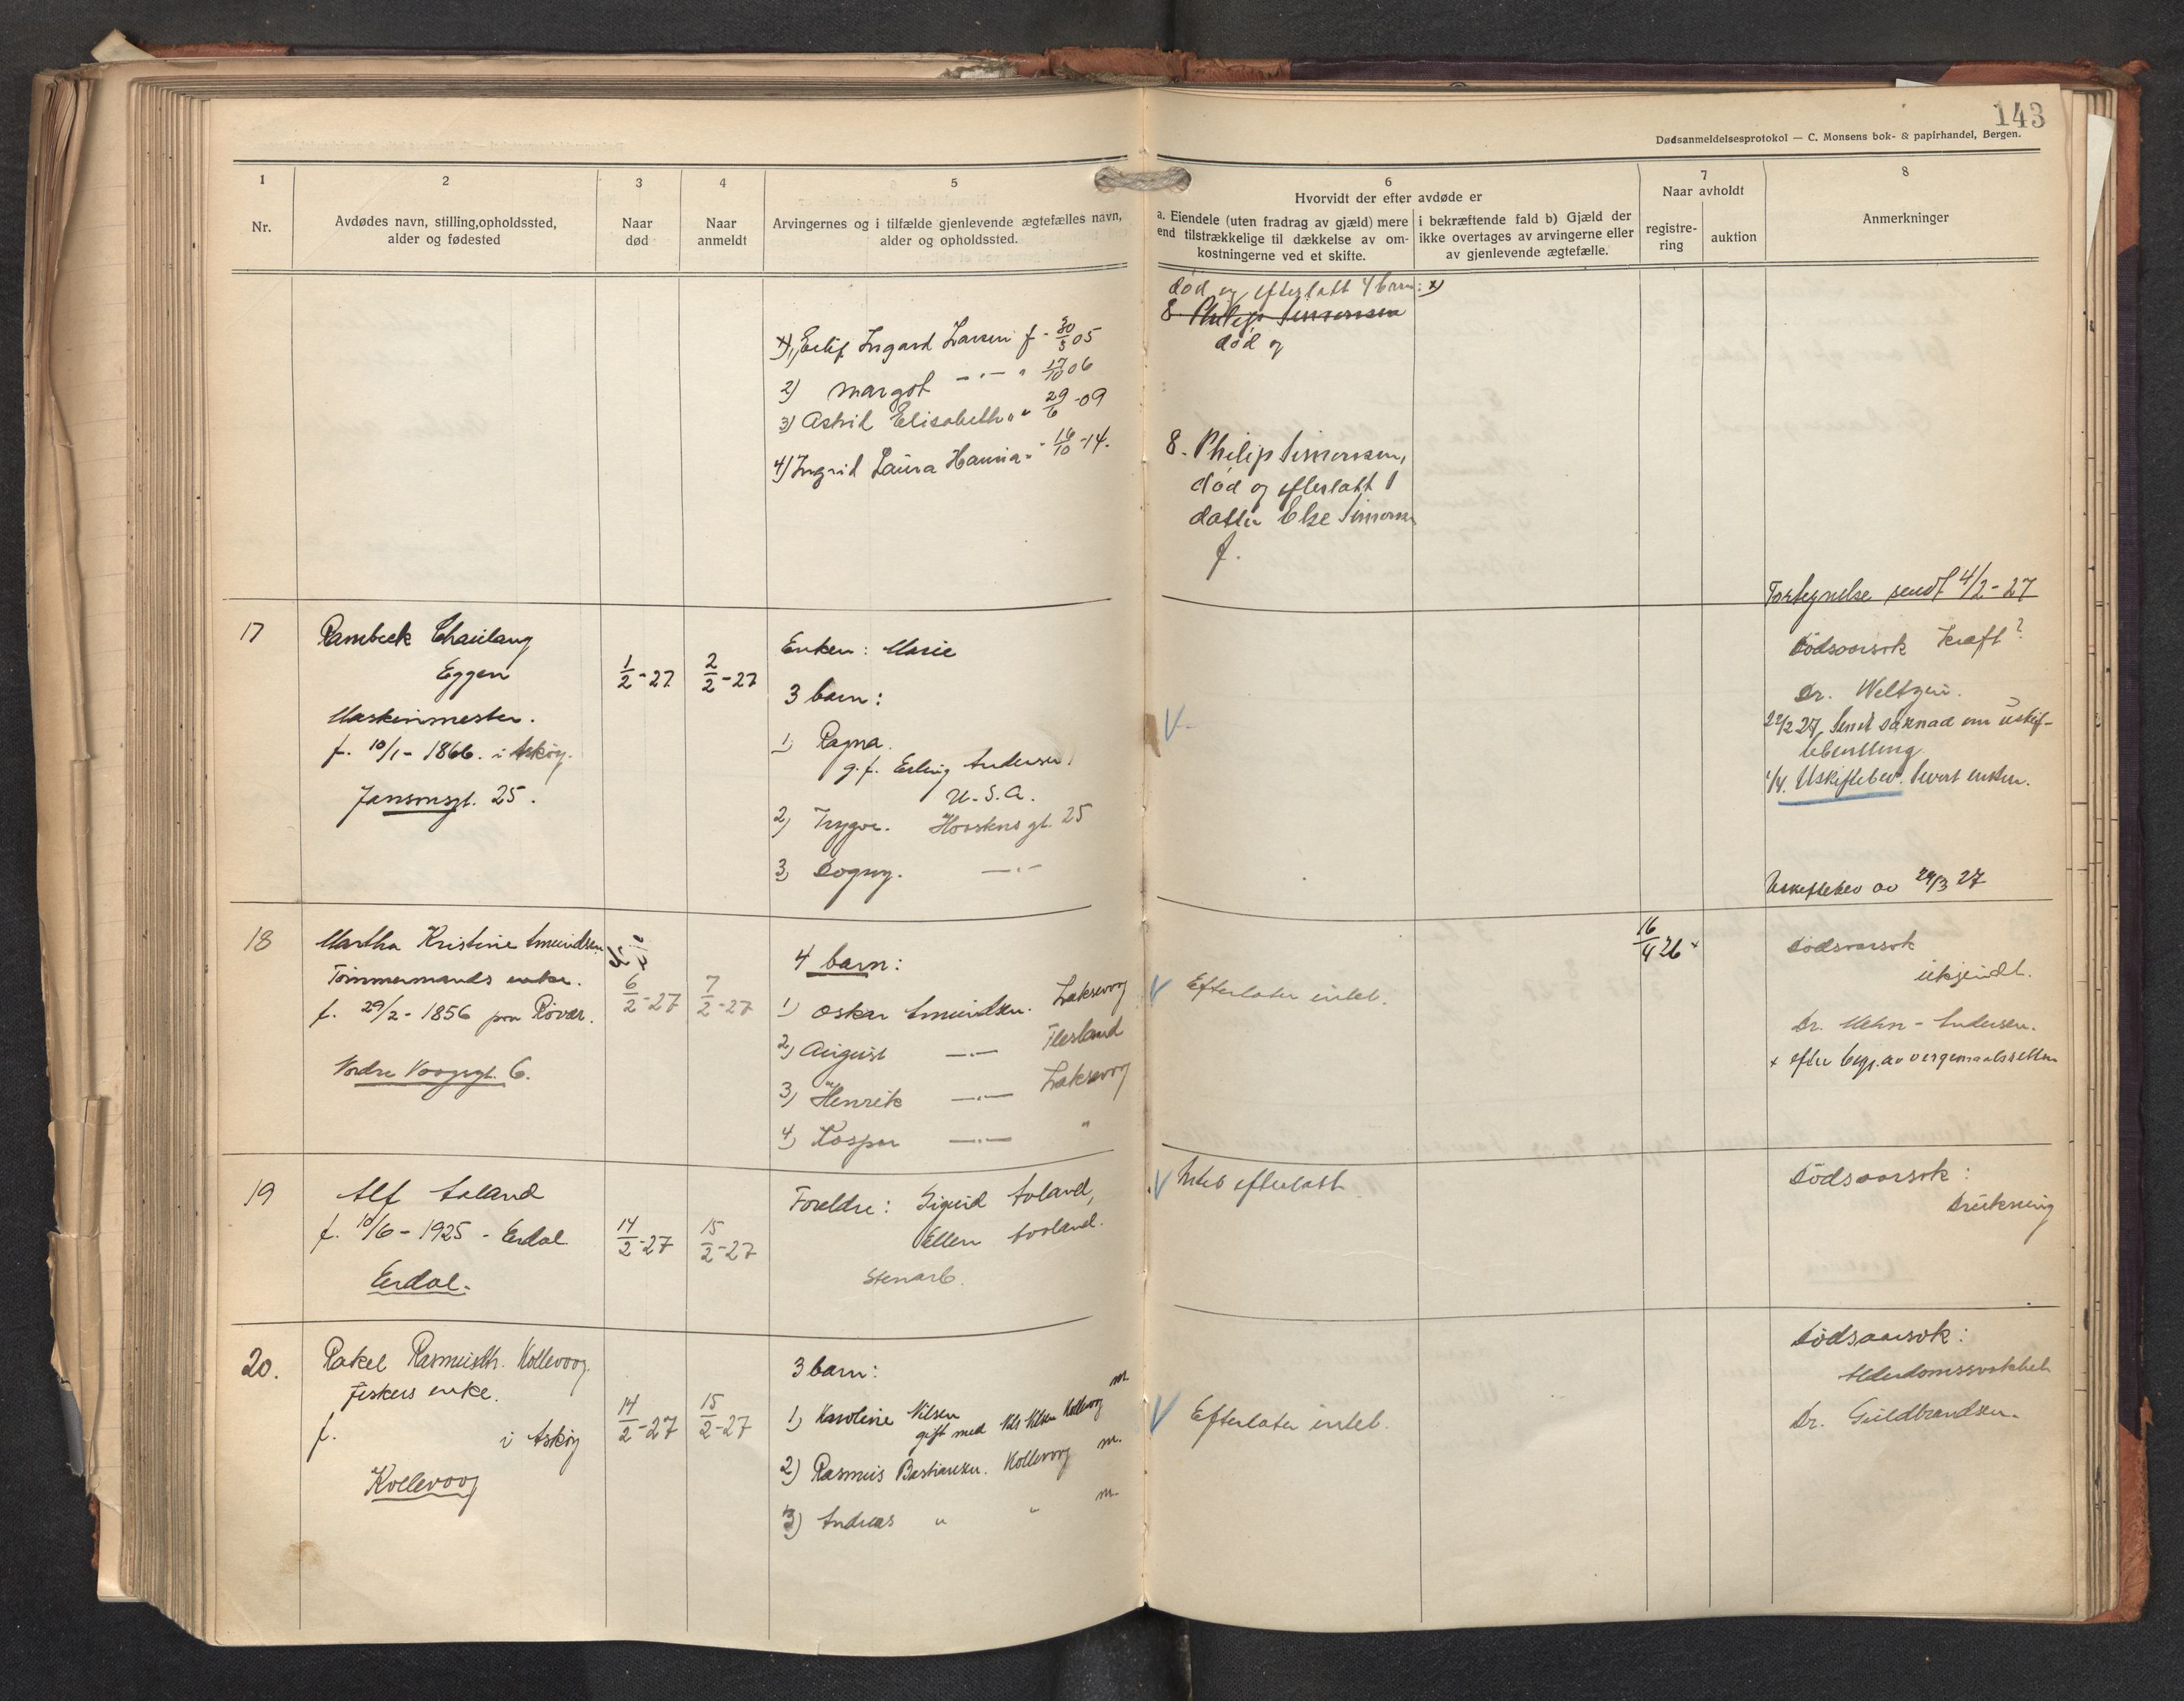 143
Dødsanmeldelsesprotokol — C. Monsens bok- & papirhandel, Bergen.
1
Nr.
2
Avdødes navn, stilling, opholdssted,
alder og fødested
3
Naar
død
4
Naar
anmeldt
5
Arvingernes og i tilfælde gjenlevende ægtefælles navn,
alder og opholdssted.
6
Hvorvidt der efter avdøde er
a. Eiendele (uten fradrag av gjæld) mere
end tilstrækkelige til dækkelse av om-
kostningerne ved et skifte.
i bekræftende fald b) Gjæld der
ikke overtages av arvingerne eller
av gjenlevende ægtefælle.
7
Naar avholdt
registre-
ring
auktion
8
Anmerkninger
x), Eilif Ingard Larsen f. 30/3 05
2) Margot —"— " 17/10 06
3) Astrid Elisabeth " " 29/6 -09
4) Ingrid Laura Hanna " 16/10 -14.
død og efterlatt 4 barn: x)
8. Philip Simonsen
død og
8. Philip Simonsen,
død og efterlatt 1
datter Else Simonsen
f.
Fortegnelse sendt 4/2-27
17
Eggen
Maskinmester.
f. 10/1 - 1866. i Askøy.
Jansonsgt. 25.
1/2-27
2/2-27
Enken: Marie
3 barn:
1) Ragna.
g. f. Erling Andersen,
U.S.A.
2) Trygve. gt. 25
3) Dogny. —"—
V
Dødsaarsok Kræft?
Dr. Weltzin.
22/2 27 Sendt søknad om uskif-
1/4. Uskiftebev. sendt enken.
Uskiftebev av 29/3 27
18
Martha Kristine Amundsen
Tømmermands enke.
f. 29/2 - 1856 paa Røvær.
Nordre Vaagegt. 6.
6/2-27
7/2-27
4 barn:
1) Oskar Amundsen. Laksevog
2) August —"— Flesland
3) Henrik —"— Laksevog
4) Kaspar —"— "
V Efterlater intet.
16/4 26 x
Dødsaarsok
ukjendt.
Dr. Mehn-Andersen.
x efter begj. av vergemaalsretten
19
Alf Aaland
f. 10/6 - 1925 - Erdal
Erdal.
14/2-27
15/2-27
Foreldre: Sigurd Aaland,
Ellen Aaland.
Stenarb.
V Intet efterlatt
Dødsaarsok:
Drukning
20.
Rakel Rasmusdtr. Kollevoog.
Fiskers enke.
f. i Askøy
Kollevoog
14/2-27
15/2-27
3 barn:
1) Karoline Nilsen m.
gift med Nils Nilsen Kollevog
2) Rasmus Bastiansen. Kollevoog m.
3) Andreas " " m.
V Efterlater intet.
Dødsaarsok:
Alderdomssvakhet
Dr. Guldbrandsen.